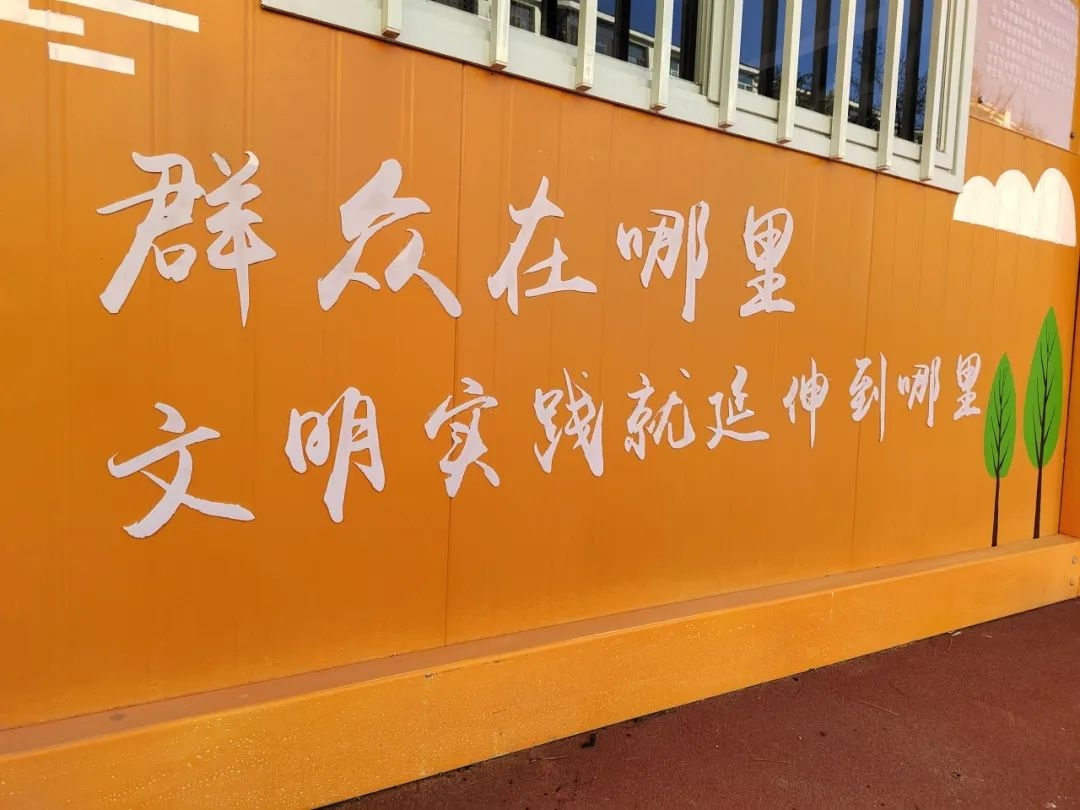 群众在哪里
文明实践就延伸到哪里